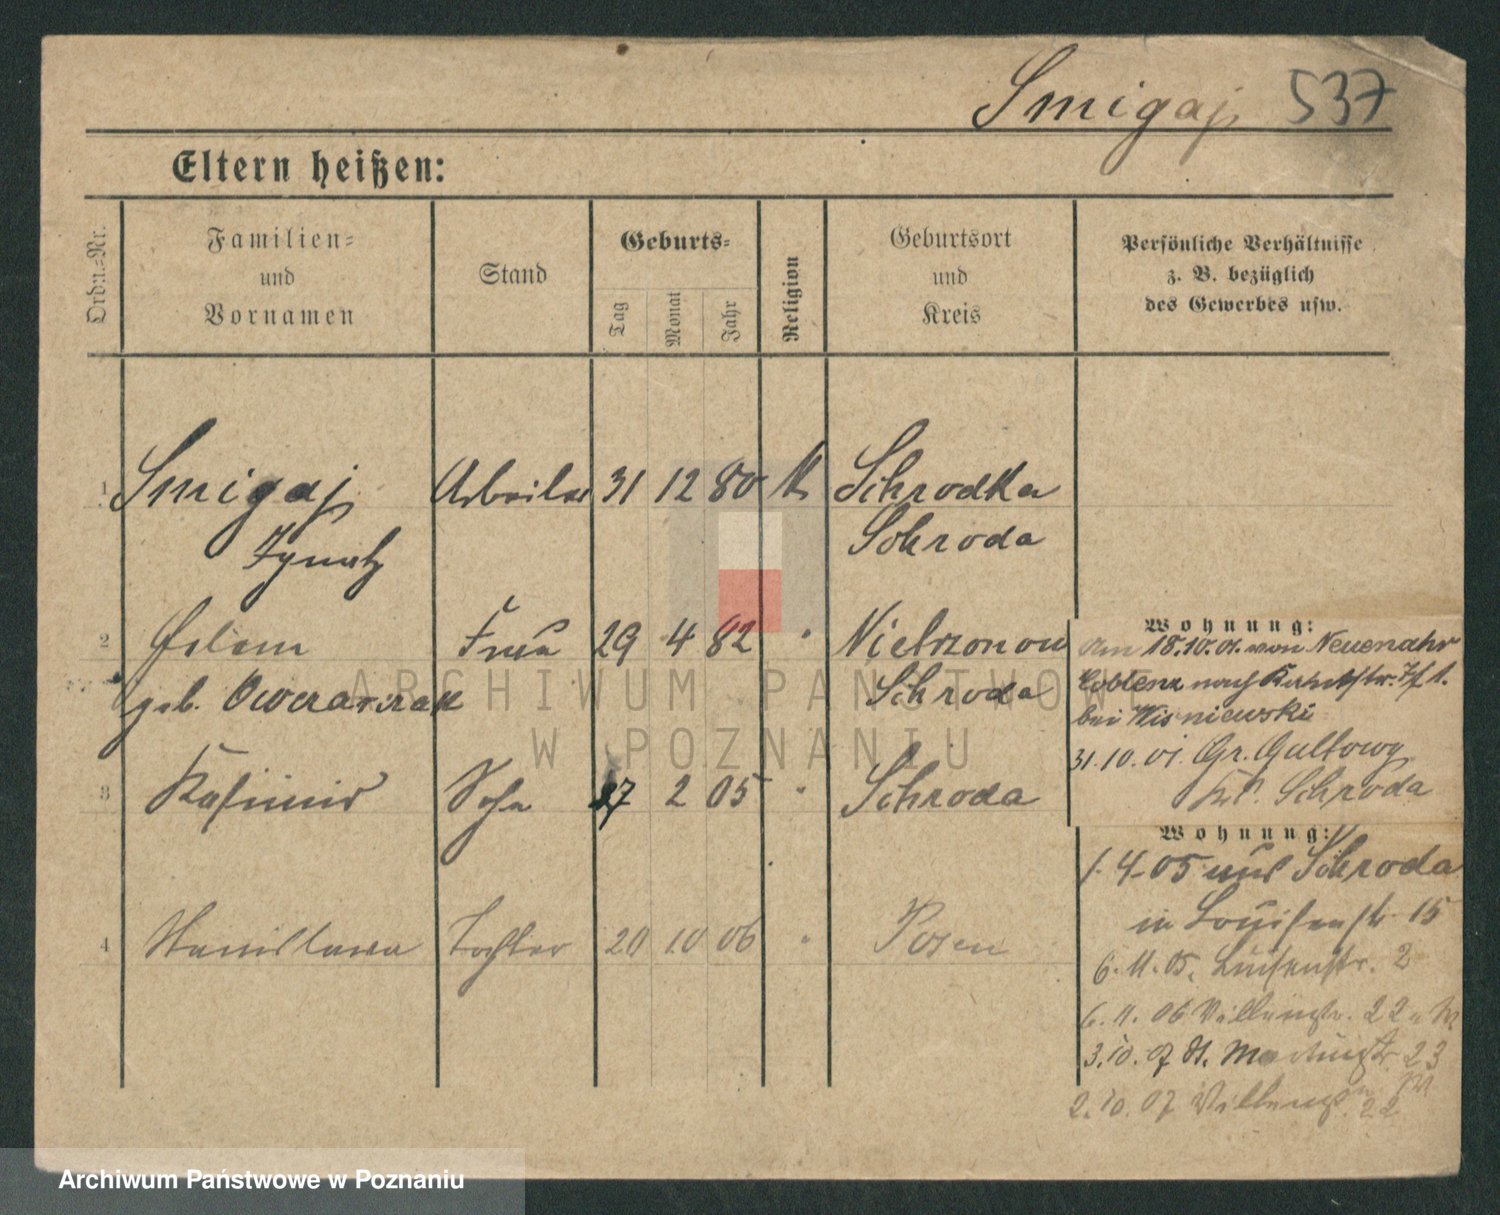 Smigaj 537
Eltern heißen:
Ordn.-Nr.
Familien-
und
Vornamen
Stand
Geburts-
Tag
Monat
Jahr
Religion
Geburtsort
und
Kreis
Persönliche Verhältnisse
z. B. bezüglich
des Gewerbes usw.
1 Smigaj Arbeiter 31 12 80 k Schrodka
Ignatz Schroda
2 Helena Frau 29 4 82 " Nietrzanow
geb. Schroda
3 Kasimir Sohn 27 2 05 " Schroda
4 Stanislawa Tochter 20 10 06 " Posen
Wohnung:
Am 18.10.01. von Neuenahr
Coblenz nach
bei Wisniewski
31.10.01. Gr. Gultowy
Schroda
Wohnung:
1.4.05 aus Schroda
in Louisenstr. 15
6.11.05. Luisenstr. 2
6.11.06 22
3.10.07 St. Martinstr. 23
2.10.07 22
ARCHIWUM PAŃSTWOWE
W POZNANIU
Archiwum Państwowe w Poznaniu